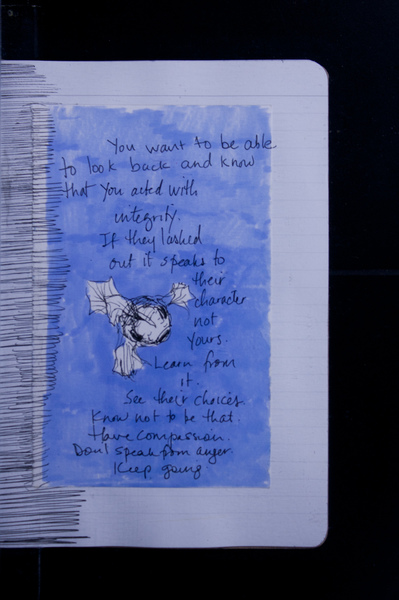 You want to be able
to look back and know
that you acted with
integrity.
If they lashed
out it speaks to
their
character
not
yours.
Learn from
it.
See their choices.
Know not to be that.
Have compassion.
Don't speak from anger.
Keep going